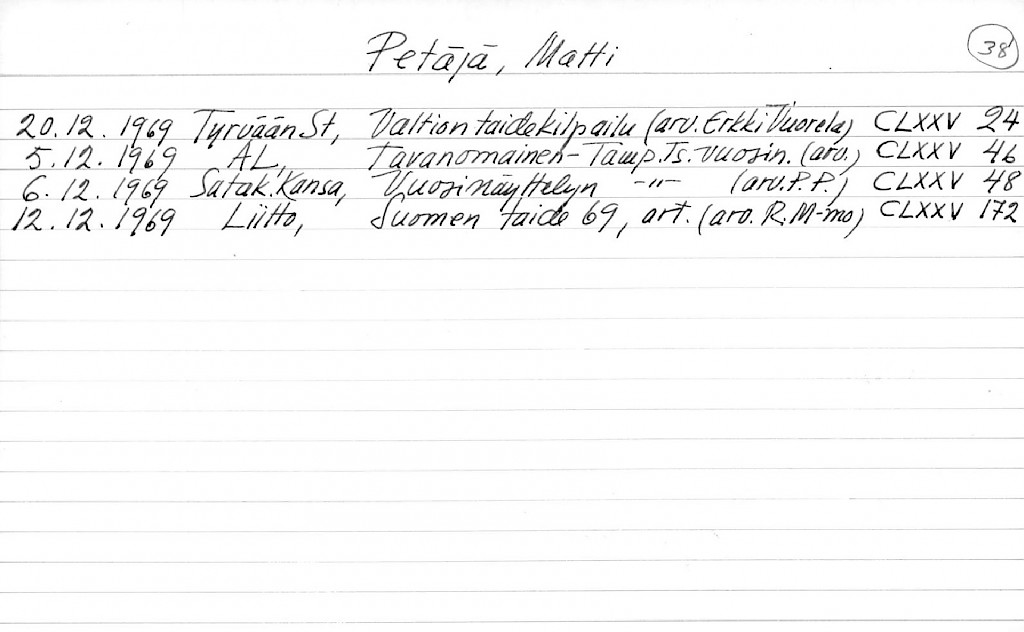 Petäjä, Matti
38
20.12.1969 Tyrvään St, Valtion taidekilpailu (arv. Erkki Vuorela) CLXXV 24
5.12.1969 AL, Tavanomainen - Tamp.Ts. vuosin. (arv.) CLXXV 46
6.12.1969 Satak.Kansa, Vuosinäyttelyn -"- (arv. P.P.) CLXXV 48
12.12.1969 Liitto, Suomen taide 69, art. (arv. R.M-mo) CLXXV 172